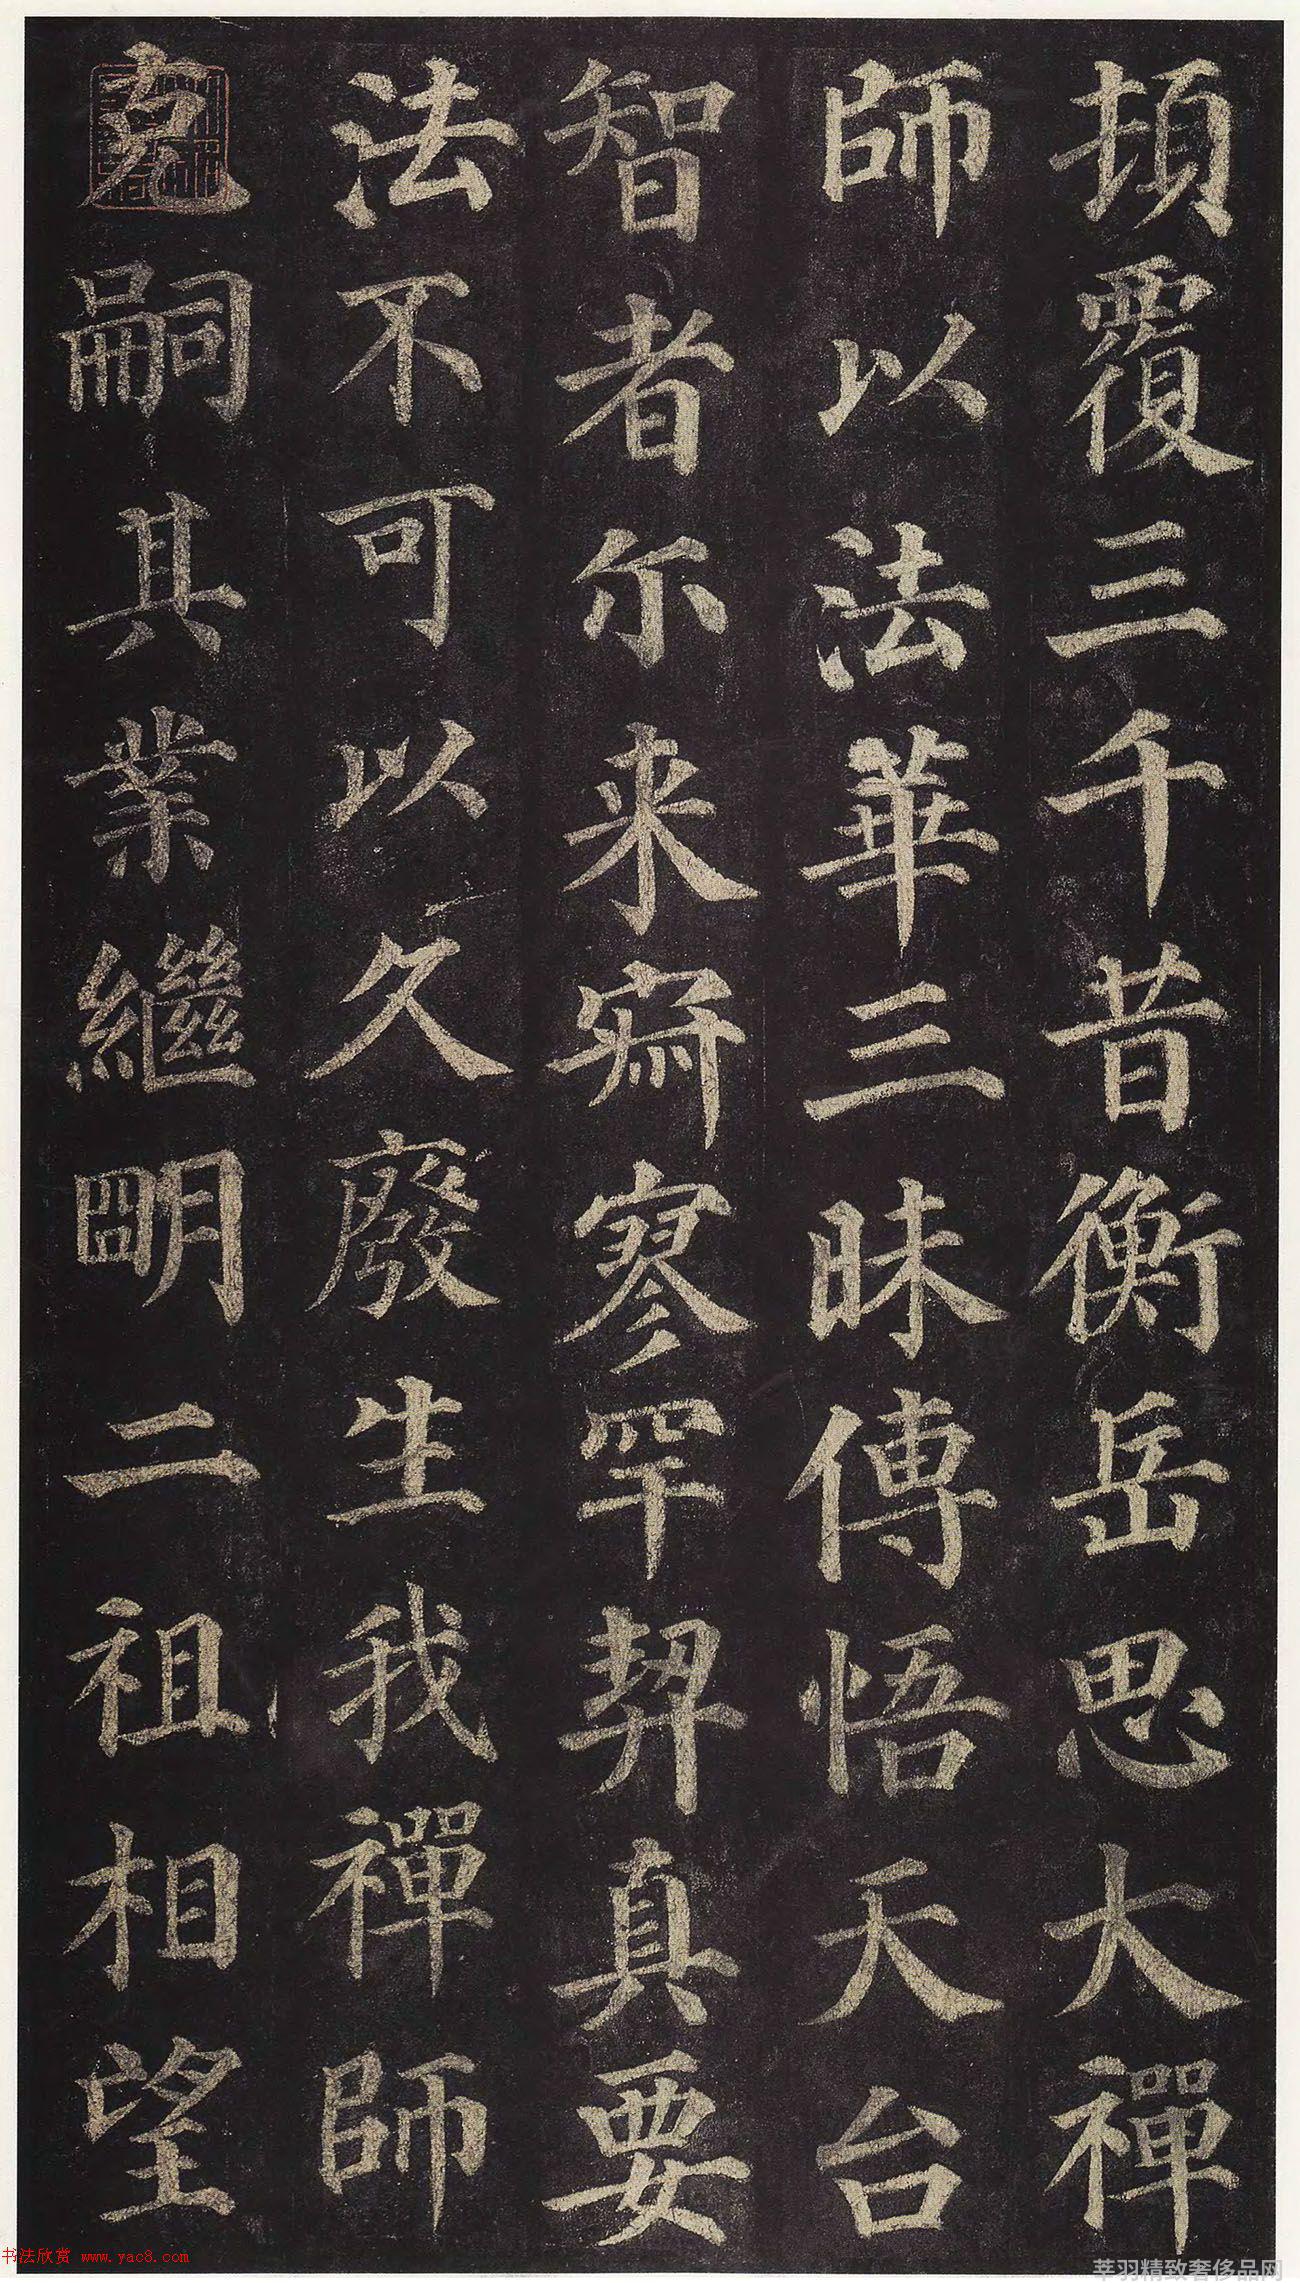 頂覆三千昔衡岳思大禪
師以法華三昧傳悟天台
智者尓来寂寥罕契真要
法不可以久廢生我禪師
克嗣其業繼明二祖相望
书法欣赏 www.yac8.com
莘羽精致奢侈品网